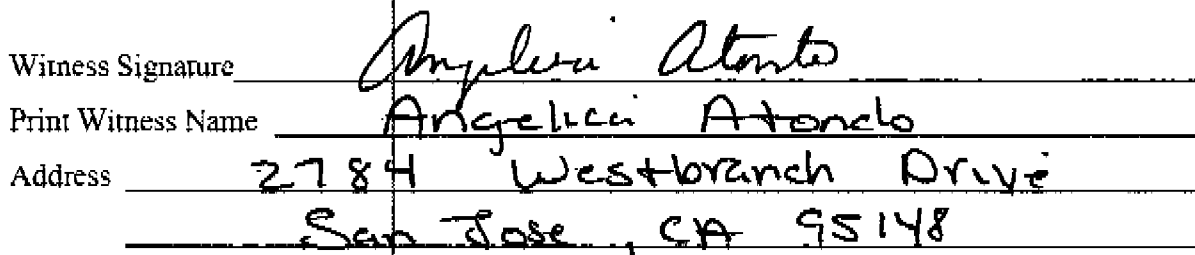 Witness Signature Angelica Atondo
Print Witness Name Angelica Atondo
Address 2784 Westbranch Drive
San Jose, CA 95148